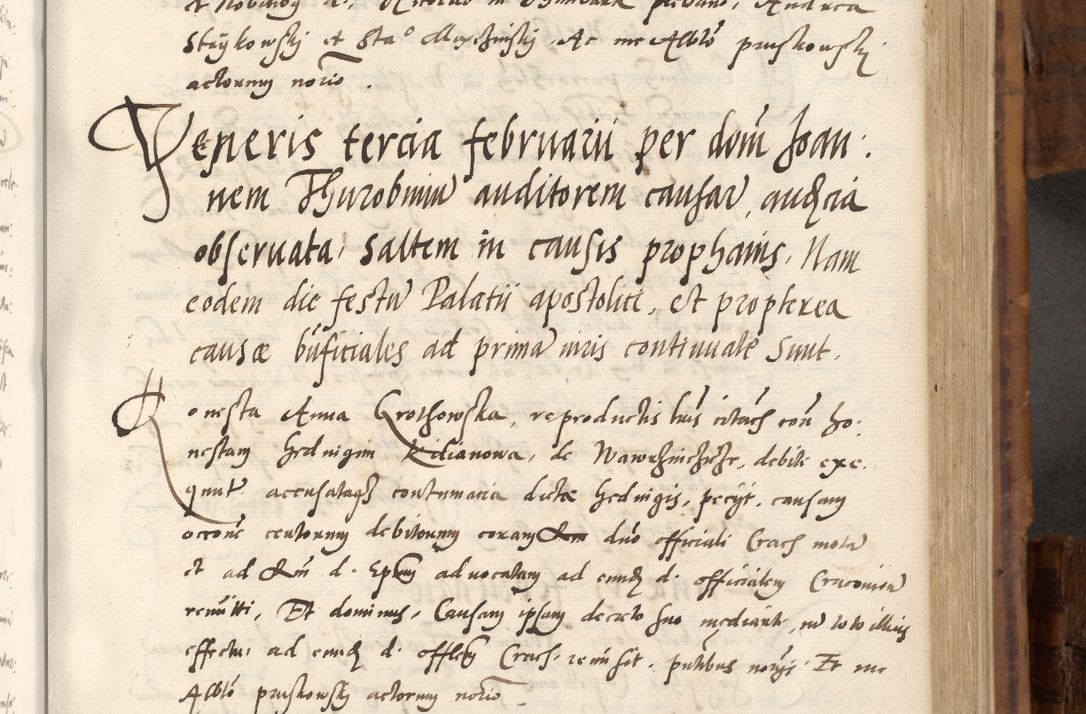 Strykowskij et Sta° , Ac me Albtō pruskowskj
actorum notrio .
Veneris tercia februarii per dom̄ Joan:
nem Thurobiniu auditorem causar, audcia
observata, saltem in causis prophanis, Nam
eodem die festu Palatii apostolici, et propterea
causæ bn̄ficiales ad prima iuris continuate sunt.
Honesta Anna Grothowska, reproductis lris citach con̄ ho:
nestam Hedvigim Kilianowa, de , debite exe:
quut accusataqz contumacia dictæ Hedvigis, pecijt, causam
occone certorum debitorum coram dno officiali Crac mota
et ad d. Ep̄um advocatam ad eundz d. officialem Cracovien
remitti, Et dominus, Causam ipsam decreto suo mediante, in toto illius
effectu ad eundz d. offlem Crac. remisit. pn̄tibus Et me
Albtō pruskowskj actorum notrio